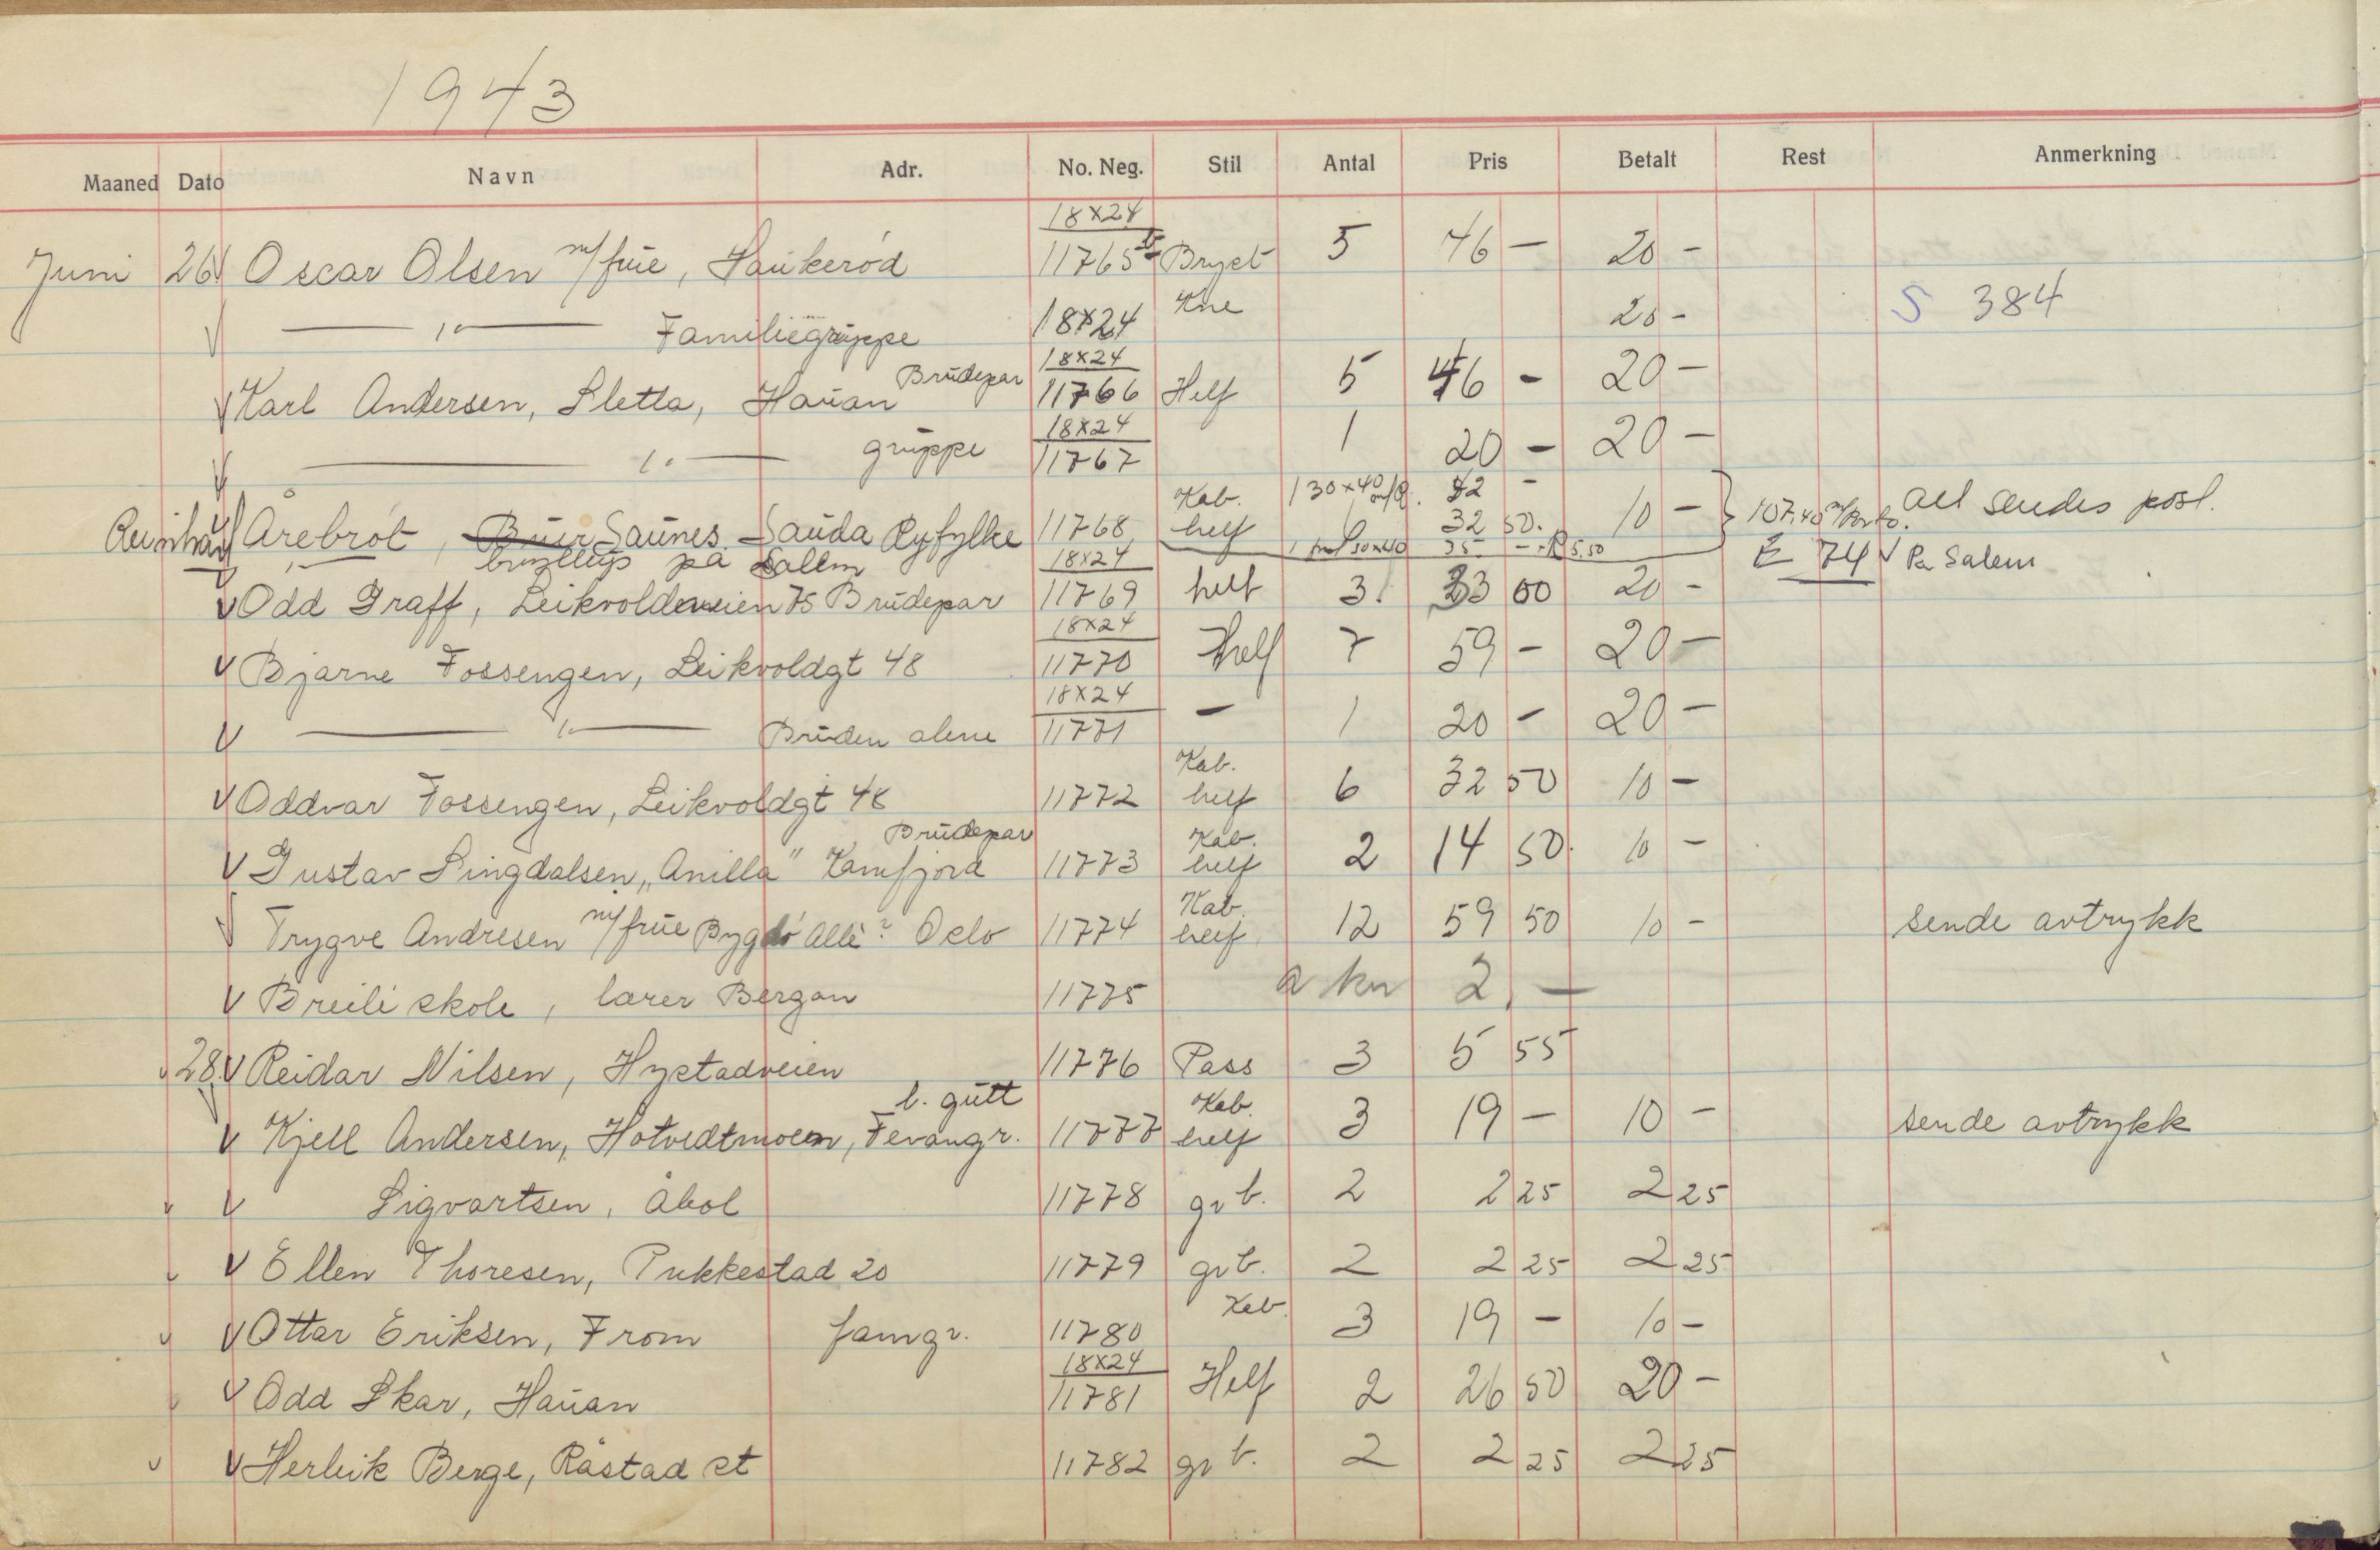 1943
Maaned Dato Navn Adr. No. Neg. Stil Antal Pris Betalt Rest Anmerkning
18x24
Juni 26 V Oscar Olsen m/frue, Haukerød 11765 Bryst 5 46 — 20 -
V — " — Familiegruppe 18x24 Kne 20 - S 384
Brudepar 18x24
V Karl Andersen, Sletta, Hauan 11766 Helf 5 46 - 20 -
18x24
V — " — gruppe 11767 1 20 - 20 -
Kab. 1 30x40 -
Årebrot, Saunes Sauda Ryfylke 11768 helf 32 50. 10 - 107,40 m/Porto. alt sendes post.
bryllup på Salem 18x24 30x40 35 - 5,50 E 74 V På Salem
V Odd Graff, Leikvoldveien 75 Brudepar 11769 helf 3 33 00 20 -
18x24
V Bjarne Fossengen, Leikvoldgt 48 11770 Helf 7 59 - 20 -
18x24
V — " — Bruden alene 11771 - 1 20 - 20 -
Kab.
V Oddvar Fossengen, Leikvoldgt 48 11772 helf 6 32 50 10 -
Brudepar Kab.
V Gustav Lingdalsen "Anilla" Kamfjord 11773 helf 2 14 50. 10 -
Kab.
V Trygve Andresen m/frue Bygdø Allè ? Oslo 11774 helf 12 59 50 10 - sende avtrykk
V Breili skole, lærer Bergan 11775 a kr 2, —
V 28. V Reidar Nilsen, Hystadveien 11776 Pass 3 5 55
l. gutt Kab.
V Kjell Andersen, Hotvedtmoen, Fevangr. 11777 helf 3 19 - 10 - sende avtrykk
V V Sigvartsen, Åbol 11778 gr b. 2 2 25 2 25
V V Ellen Thoresen, Pukkestad 20 11779 gr b. 2 2 25 2 25
Kab.
V V Ottar Eriksen, From famgr. 11780 3 19 - 10 -
18x24
V V Odd Skar, Hauan 11781 Helf 2 26 50 20 -
V V Herleik Berge, Råstad st 11782 gr b. 2 2 25 2 25